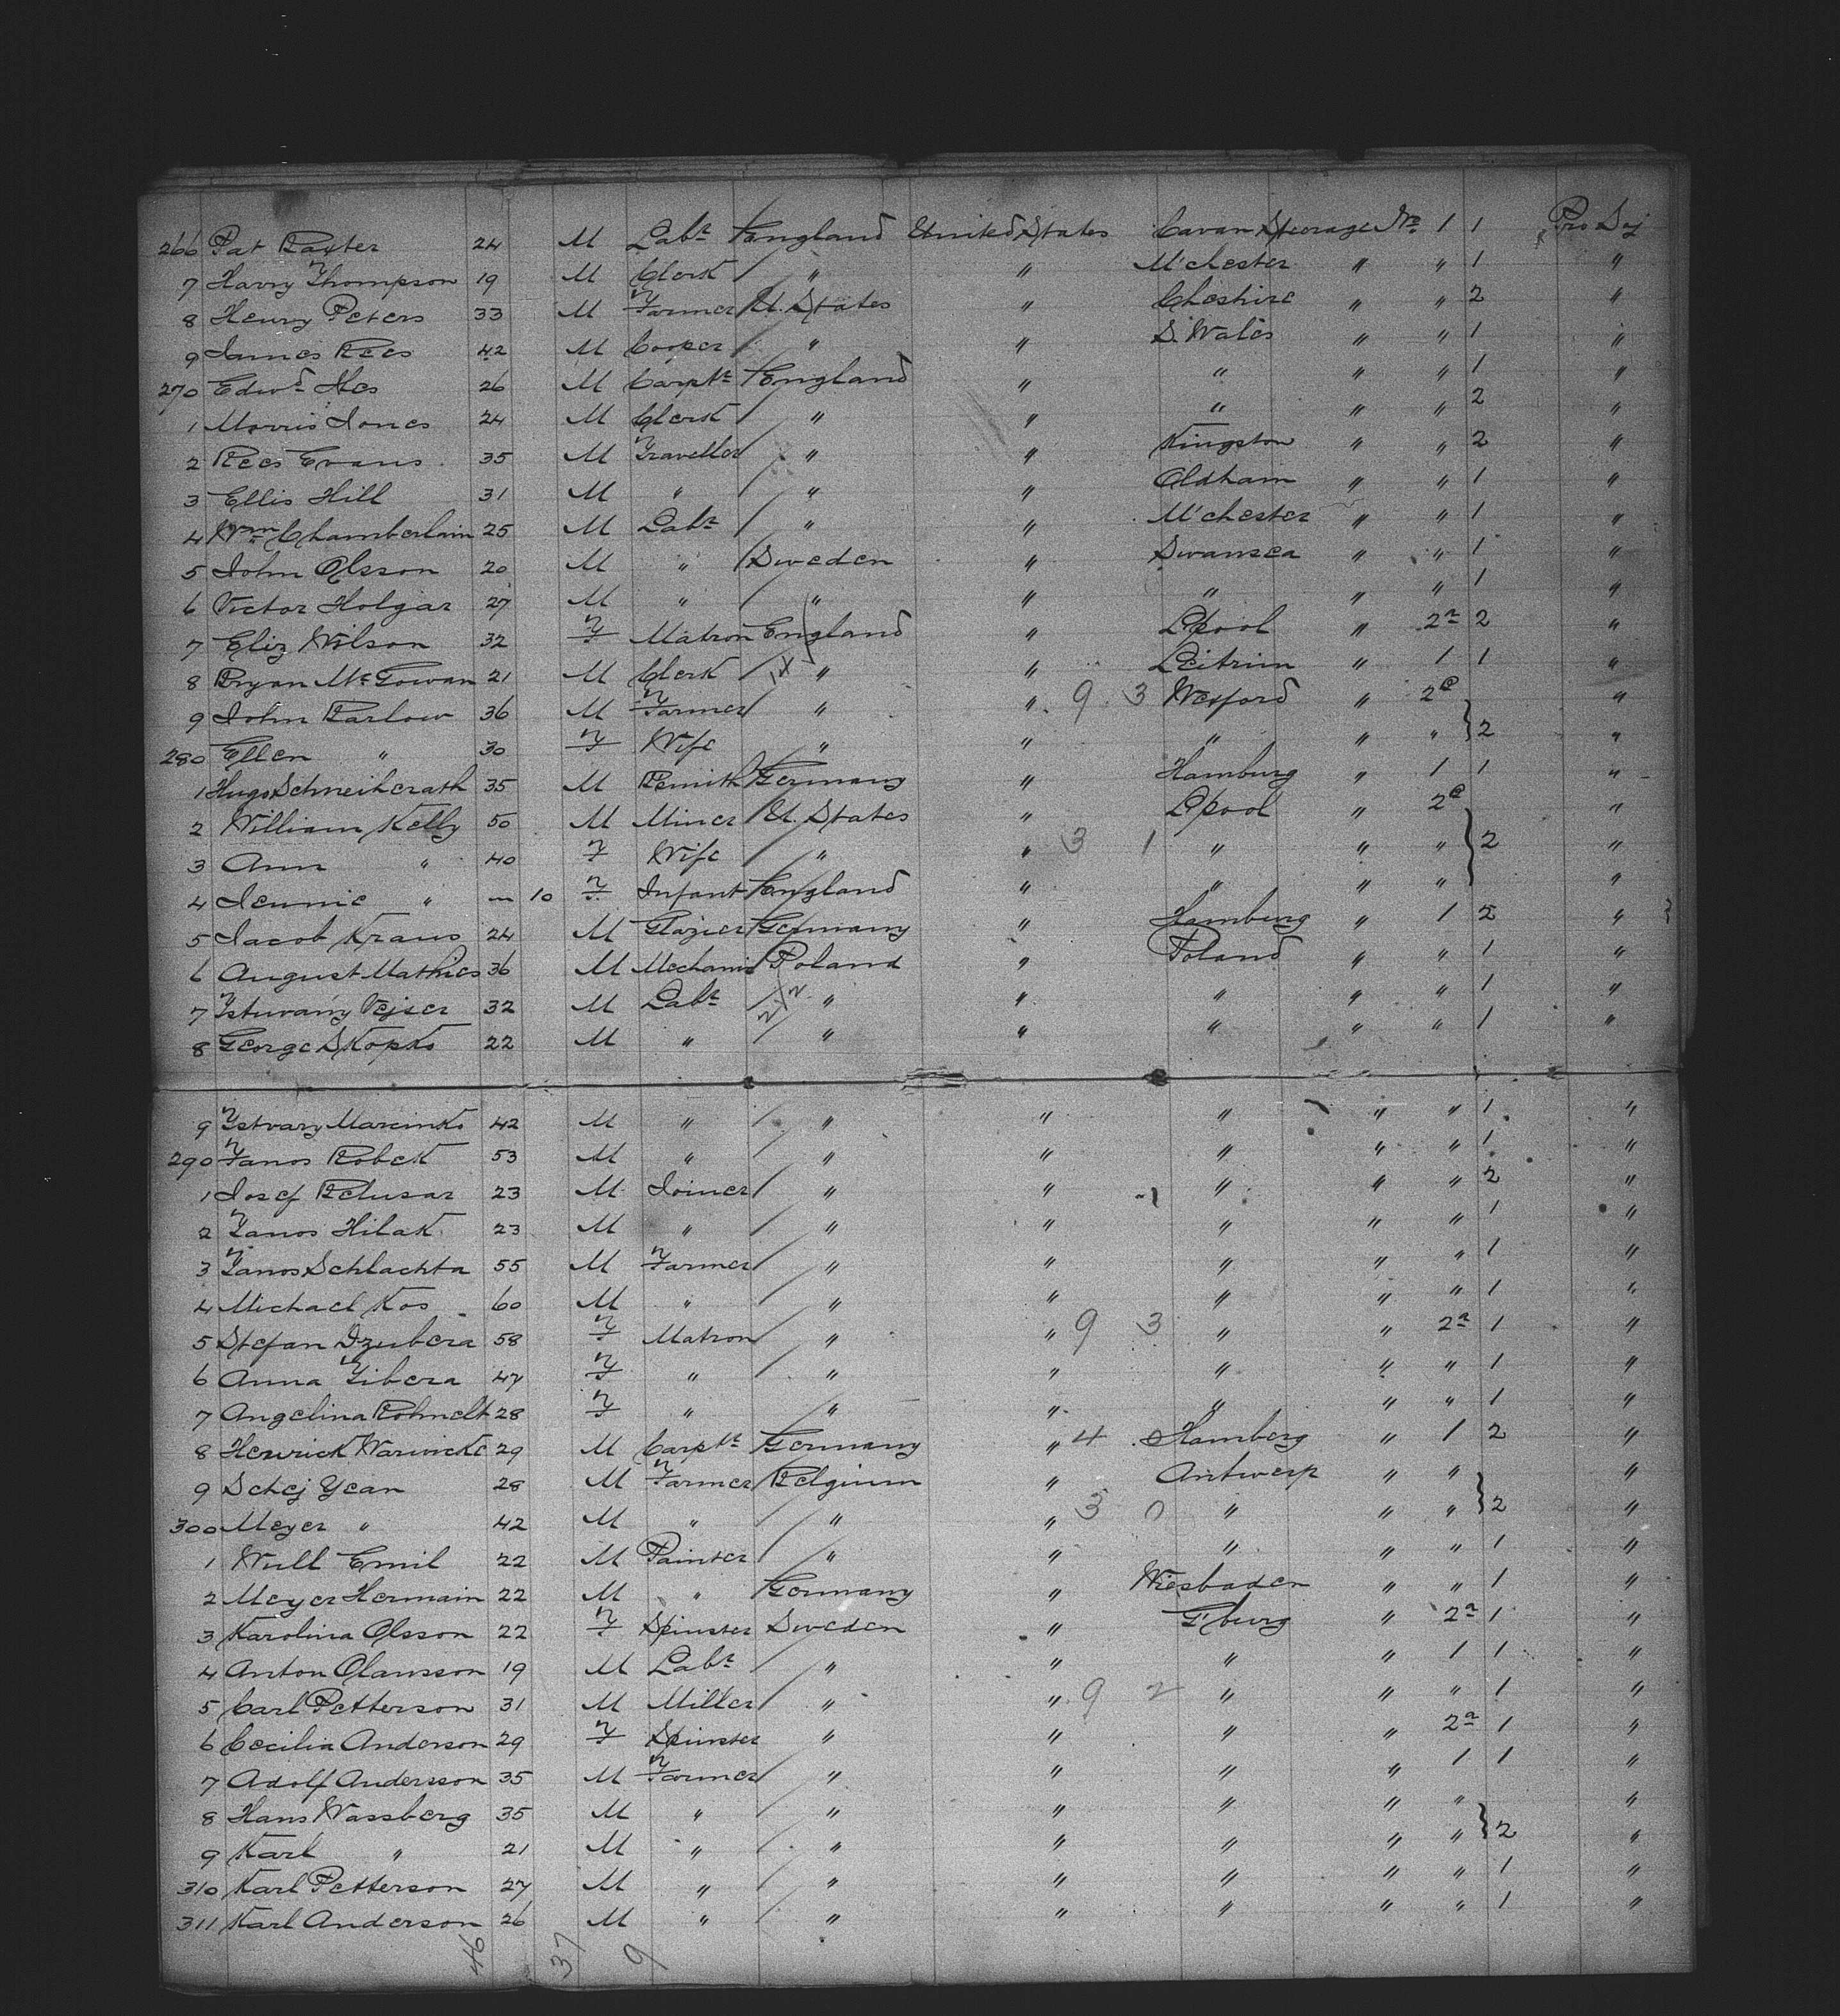 266 Pat Baxter 24 M Labr England United States Cavan Steerage No 1 1 Pro Soj
7 Harry Thompson 19 M Clerk " " M'chester " " 1 "
8 Henry Peters 33 M Farmer U. States " Cheshire " " 2 "
9 James Rees 42 M Cooper " " S. Wales " " 1 "
270 Edwd Iles 26 M Carptr England " " " " 1 "
1 Morris Jones 24 M Clerk " " " " " 2 "
2 Rees Evans 35 M Traveller " " Kingston " " 2 "
3 Ellis Hill 31 M " " " Oldham " " 1 "
4 Wm Chamberlain 25 M Labr " " M'chester " " 1 "
5 John Olsson 20 M " Sweden " Swansea " " 1 "
6 Victor Holgar 27 M " " " " " " 1 "
7 Eliz Wilson 32 F Matron England " Lpool " 2a 2 "
8 Bryan McGowan 21 M Clerk " " Leitrim " 1 1 "
9 John Barlow 36 M Farmer " " 9 3 Wexford " 2c "
280 Ellen " 30 F Wife " " " " " 2 "
1 Hugo Schneiherath 35 M Bsmith Germany " Hamburg " 1 1 "
2 William Kelly 50 M Miner U. States " Lpool " 2c "
3 Ann " 40 F Wife " " 3 1 " " " 2 "
4 Jennie " 10 F Infant England " " " " "
5 Jacob Kraus 24 M Glazier Germany " Hamburg " 1 2 "
6 August Mathies 36 M Mechanic Poland " Poland " " 1 "
7 Istuvany Vejser 32 M Labr " " " " " 1 "
8 George Skopko 22 M " " " " " " 1 "
9 Istvary Marcinko 42 M " " " " " " 1 "
290 Janos Bobek 53 M " " " " " " 1 "
1 Josef Belusar 23 M Joiner " " " " " 2 "
2 Janos Hilak 23 M " " " " " " 1 "
3 Janos Schlachta 55 M Farmer " " " " " 1 "
4 Michael Kos 60 M " " " " " " 1 "
5 Stefan Dzubera 58 F Matron " " 9 3 " " 2a 1 "
6 Anna Fibera 47 F " " " " " " 1 "
7 Angelina Bohmelt 28 F " " " " " " 1 "
8 Henrick Warwicke 29 M Carptr Germany " 4 Hamberg " 1 2 "
9 Schej Yean 28 M Farmer Belgium " Antwerp " " "
300 Meyer " 42 M " " " 3 0 " " " 2 "
1 Wull Emil 22 M Painter " " " " " 1 "
2 Meyer Hermain 22 M " Germany " Wiesbaden " " 1 "
3 Karolina Olsson 22 F Spinster Sweden " G'burg " 2a 1 "
4 Anton Olausson 19 M Labr " " " " 1 1 "
5 Carl Petterson 31 M Miller " " 9 2 " " " 1 "
6 Cecilia Anderson 29 F Spinster " " " " 2a 1 "
7 Adolf Andersson 35 M Farmer " " " " 1 1 "
8 Hans Wassberg 35 M " " " " " " "
9 Karl " 21 M " " " " " " 2 "
310 Karl Petterson 27 M " " " " " " 1 "
311 Karl Anderson 26 M " " " " " " 1 "
46 37 9